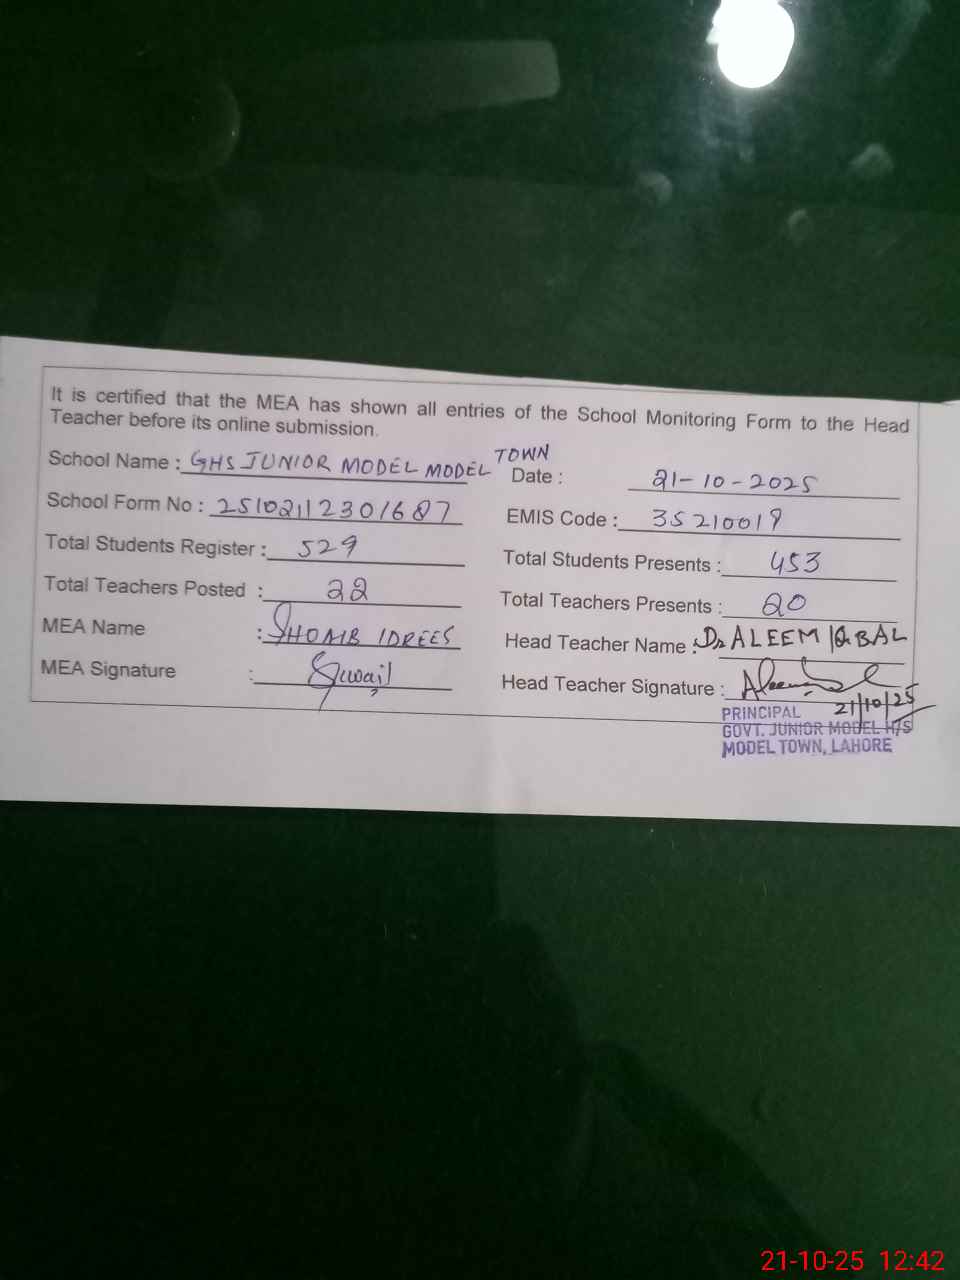 It is certified that the MEA has shown all entries of the School Monitoring Form to the Head
Teacher before its online submission.
School Name : GHS JUNIOR MODEL MODEL TOWN
Date : 21-10-2025
School Form No : 25102112301687
EMIS Code : 35210019
Total Students Register : 529
Total Students Presents : 453
Total Teachers Posted : 22
Total Teachers Presents : 20
MEA Name : SHOAIB IDREES
Head Teacher Name : Dr ALEEM IQBAL
MEA Signature :
Head Teacher Signature :
21/10/25
PRINCIPAL
GOVT. JUNIOR MODEL H/S
MODEL TOWN, LAHORE
21-10-25 12:42